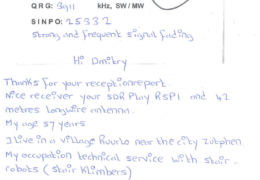 QRG: 3911 kHz, SW/MW
SINPO: 25332
strong and frequent signal fading
Hi Dmitry
Thanks for your receptionreport.
Nice receiver your SDR Play RSP1 and 42
metres longwire antenna.
My age 57 years
I live in a village Ruurlo near the city Zutphen.
My occupation technical service with stair-
robots (stair Klimbers)